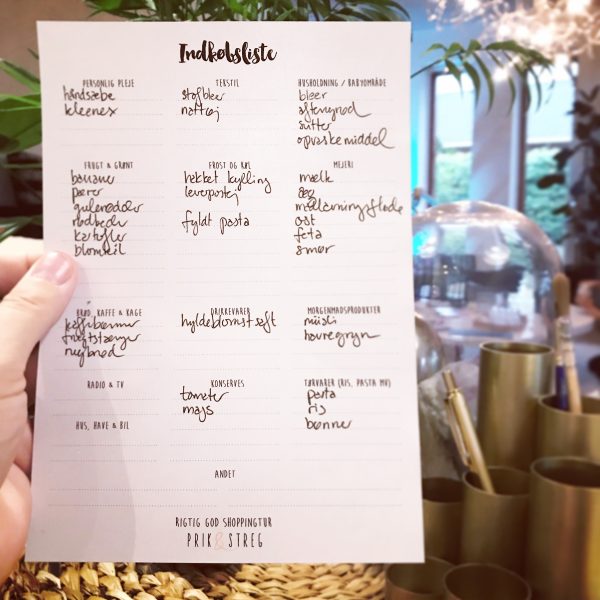 Indkøbsliste
PERSONLIG PLEJE
håndsæbe
kleenex
TEKSTIL
stofbleer
nattøj
HUSHOLDNING / BABYOMRÅDE
bleer
aftengrød
sutter
opvaskemiddel
FRUGT & GRØNT
bananer
pærer
gulerødder
rødbeder
kartofler
blomkål
FROST OG KØL
hakket kylling
leverpostej
fyldt pasta
MEJERI
mælk
æg
madlavningsfløde
ost
feta
smør
BRØD, KAFFE & KAGE
kaffebønner
frugtstænger
rugbrød
DRIKKEVARER
hyldeblomstsaft
MORGENMADSPRODUKTER
müsli
havregryn
RADIO & TV
KONSERVES
tomater
majs
TØRVARER (RIS, PASTA MV)
pasta
ris
bønner
HUS, HAVE & BIL
ANDET
RIGTIG GOD SHOPPINGTUR
PRIK & STREG